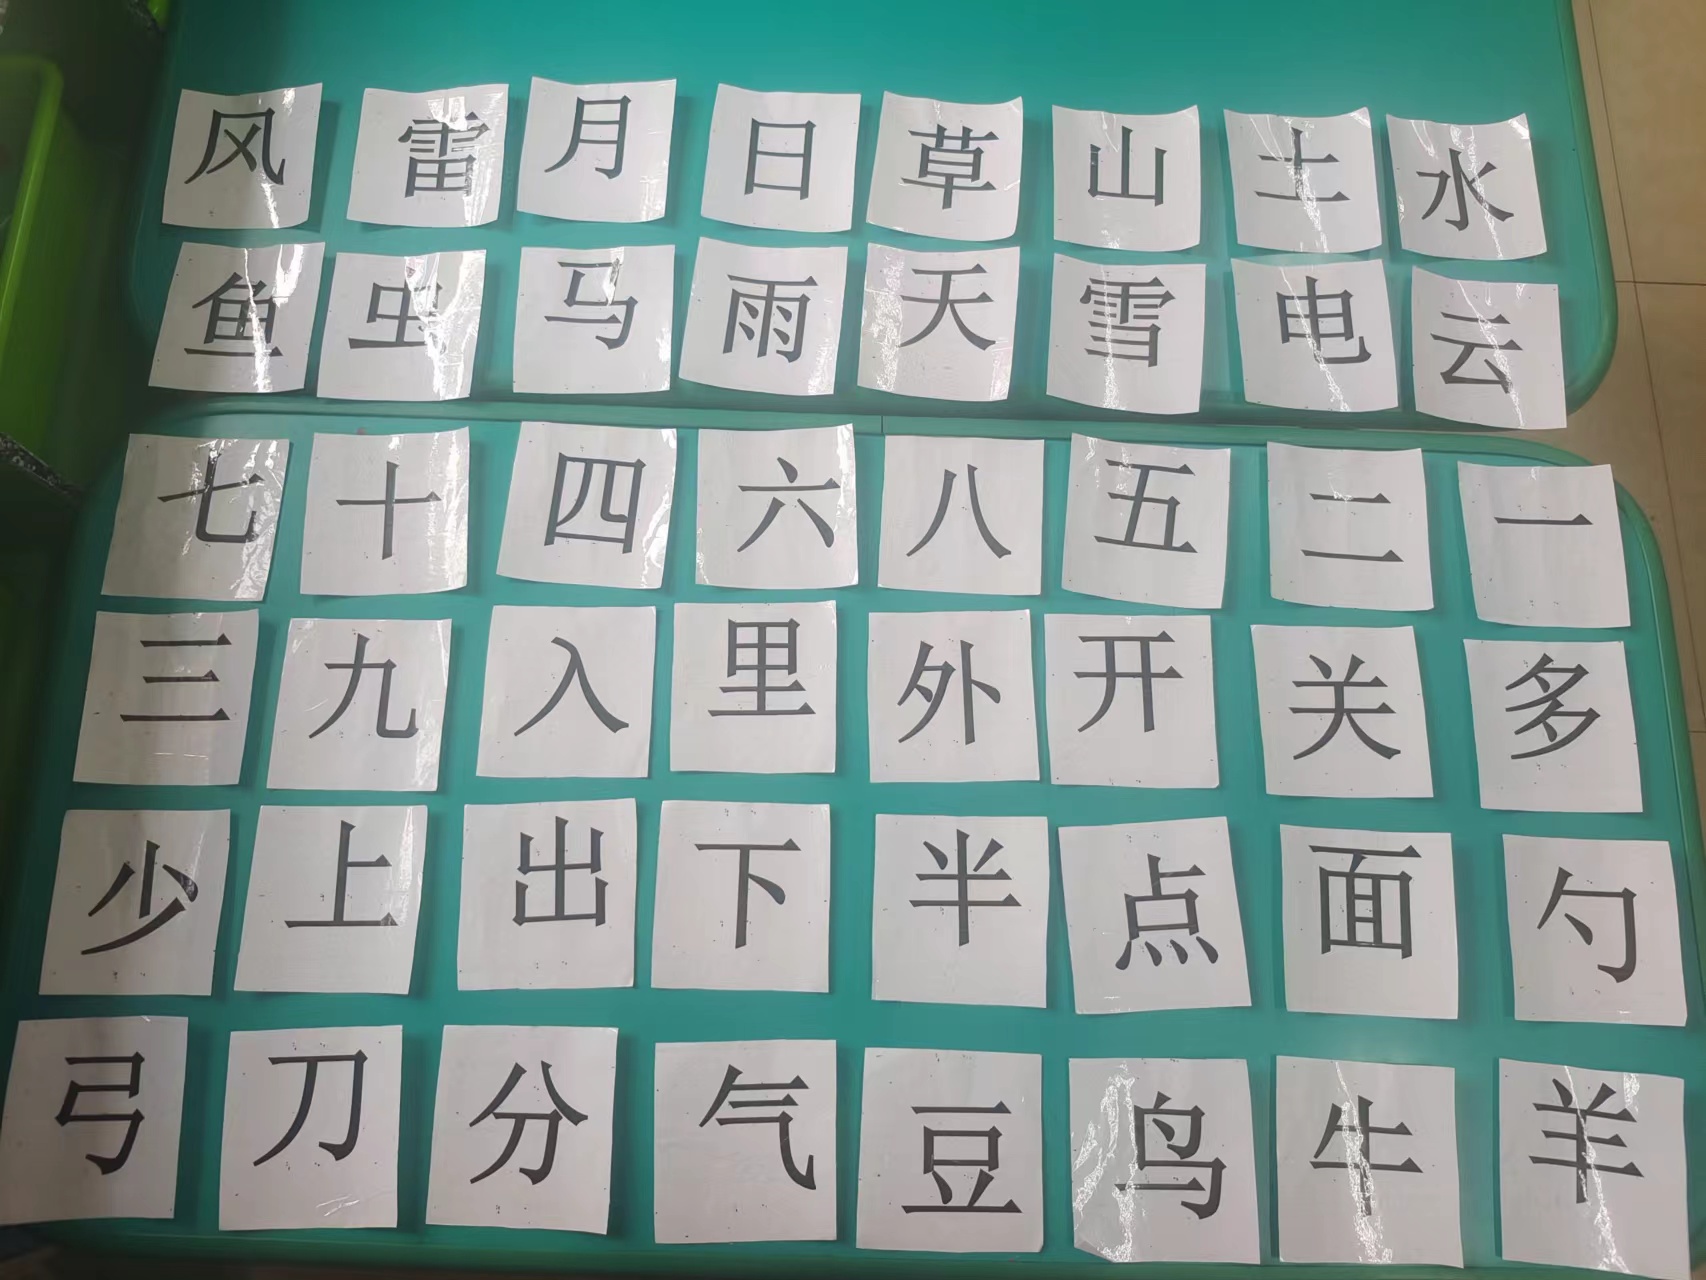 风 雷 月 日 草 山 土 水
鱼 虫 马 雨 天 雪 电 云
七 十 四 六 八 五 二 一
三 九 入 里 外 开 关 多
少 上 出 下 半 点 面 勺
弓 刀 分 气 豆 鸟 牛 羊